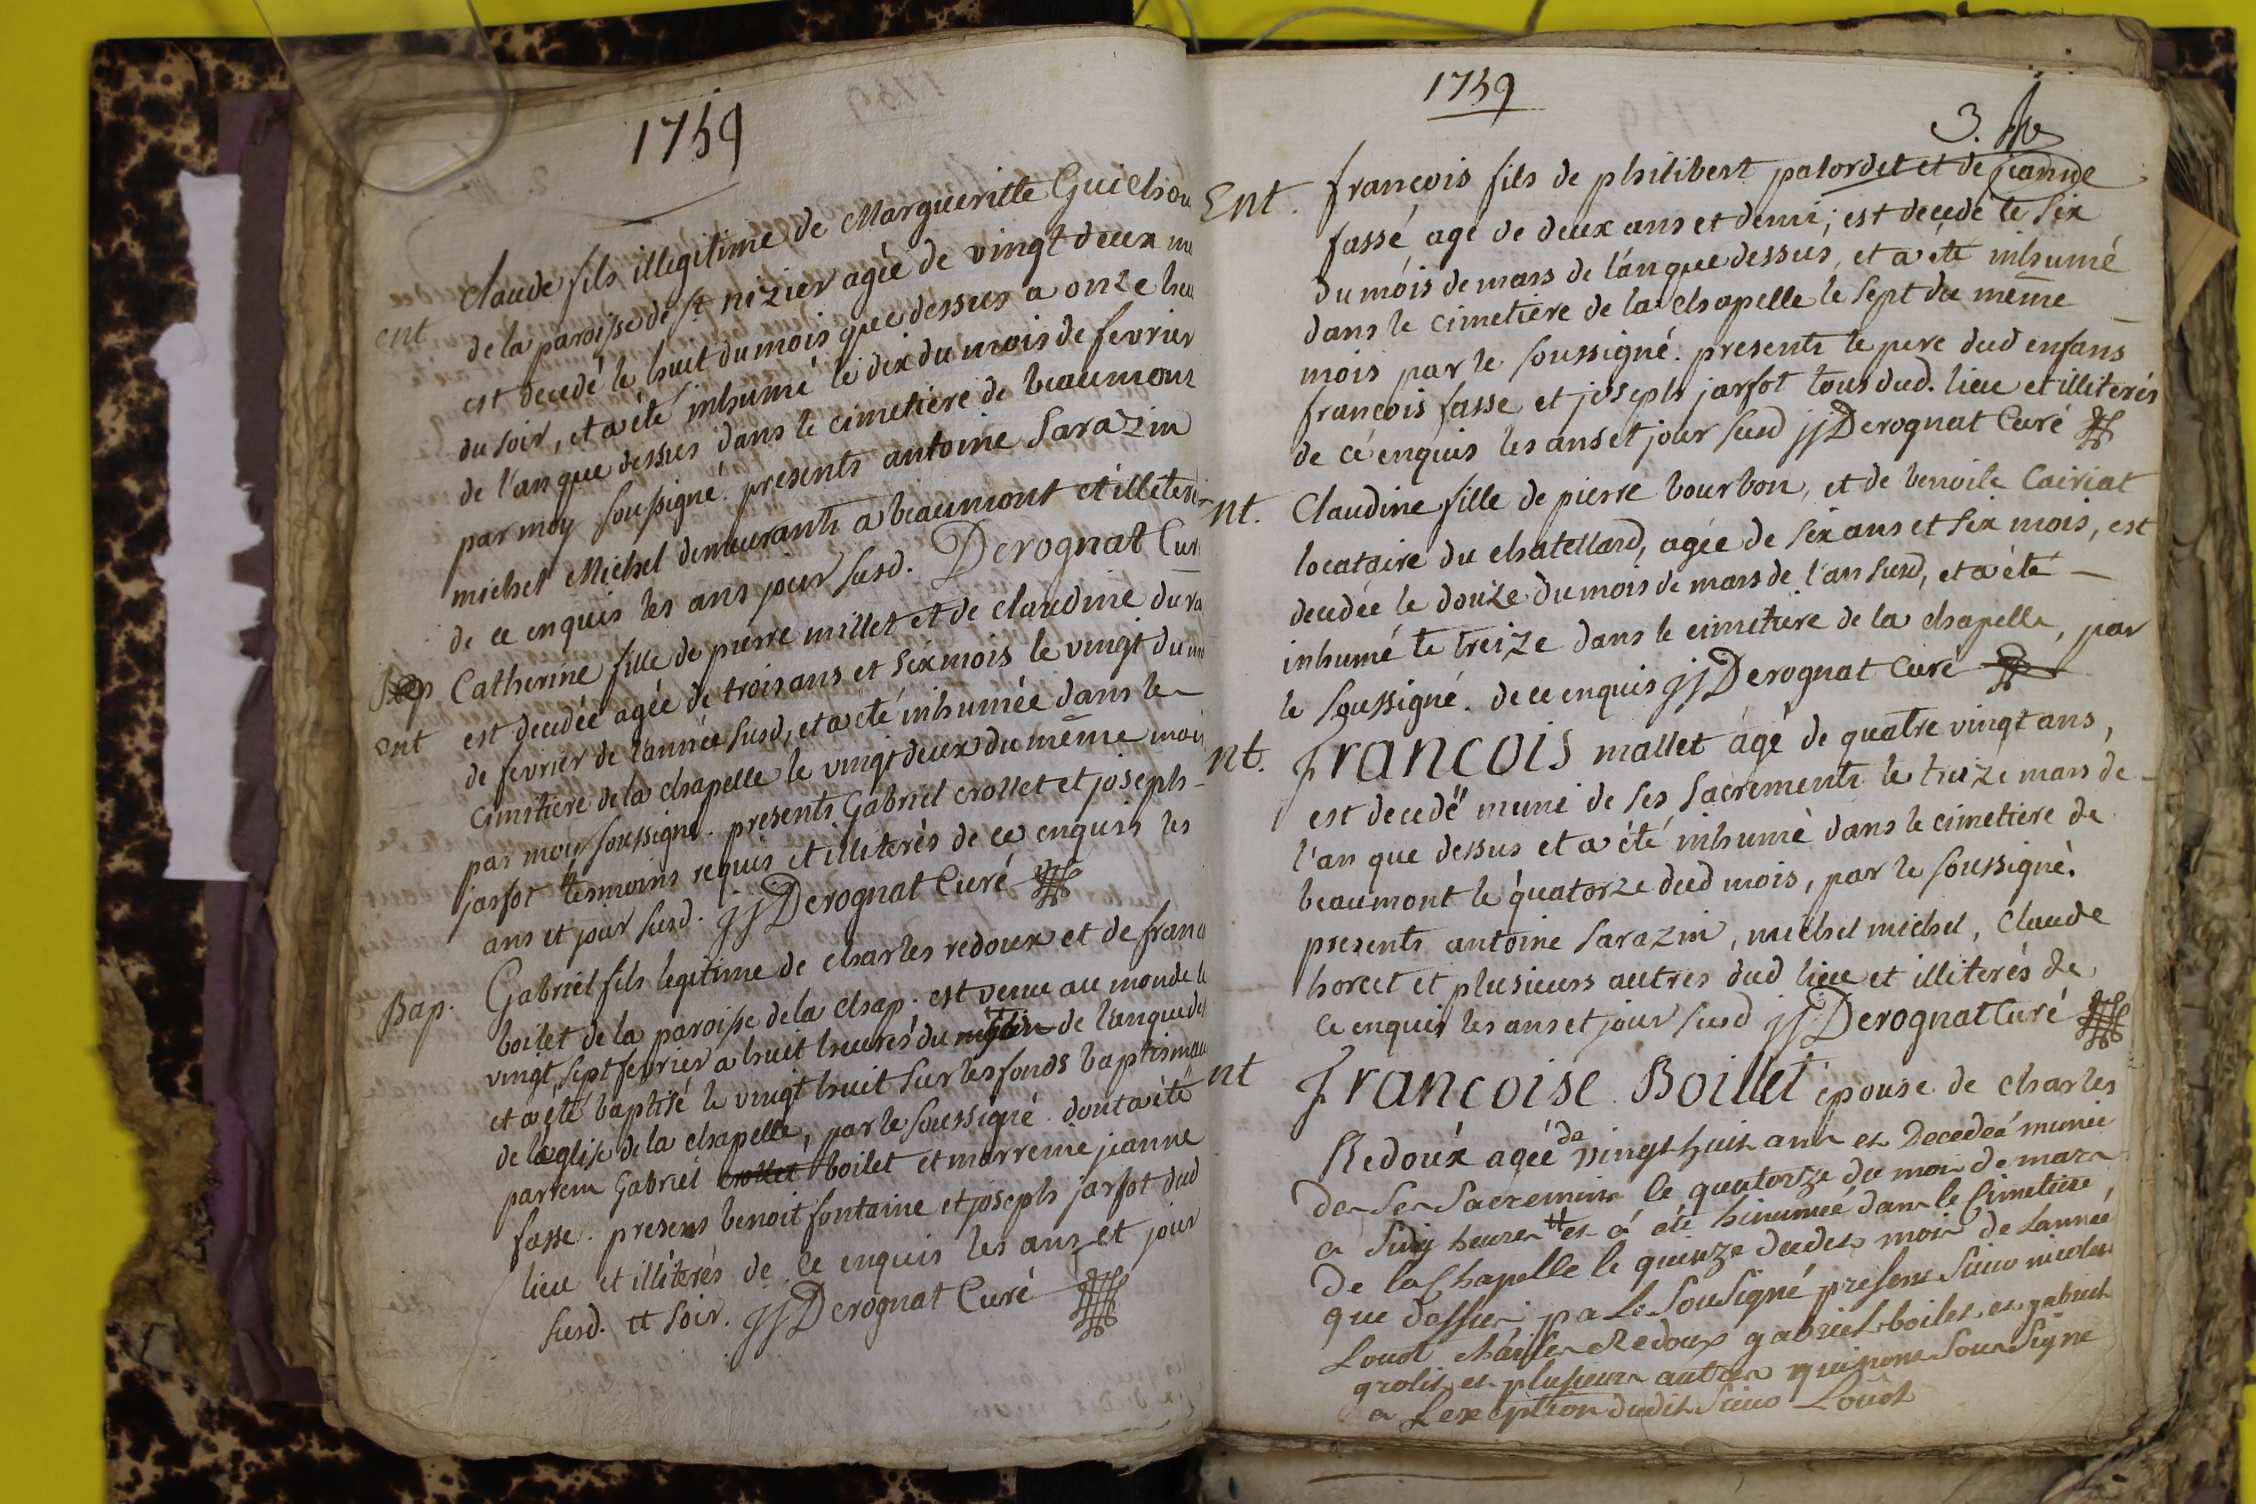 1759
ent
claude fils illegitime de Margueritte Guichou
de la paroisse de st nizier agée de vingt deux
est decedé le huit du mois que dessus a onze heu
du soir, et a été inhumé le dix du mois de fevrier
de l'an que dessus dans le cimetiere de beaumont
par moy soussigné. presents antoine Sarazin
michel Michel demeurants a beaumont et illiteré
de ce enquis les ans jour susd. Derognat Cur
Catherine fille de pierre millet et de claudine dura
ent
est decedée agée de trois ans et six mois le vingt du
de fevrier de l'année susd, et a été inhumée dans le
cimitiere de la chapelle le vingt deux du même mois
par moy soussigné. presents Gabriel crollet et joseph
jarfot tesmoins requis et illiterés de ce enquis les
ans et jour susd. jjDerognat Curé
Bap.
Gabriel fils legitime de charles redoux et de franc
boilet de la paroisse de la chap. est venu au monde l
vingt sept fevrier a huit heures du matin de l'an que des
et a été baptisé le vingt huit sur les fonds baptismau
de l'eglise de la chapelle, par le soussigné. dont a été
parrein Gabriel crollet boilet et marreine jeanne
fasse. presens benoit fontaine et joseph jarfot dud
lieu et illiterés de ce enquis les ans et jour
susd. tt soir. jjDerognat Curé
1759
3.
Ent.
françois fils de philibert palordet et de jeanne
fassé, agé de deux ans et demi; est decedé le six
du mois de mars de l'an que dessus, et a été inhumé
dans le cimetiere de la chapelle le sept du même
mois par le soussigné. presents le pere dud enfans
françois fasse et joseph jarfot tous dud. lieu et illiterés
de ce enquis les ans et jour susd jjDerognat Curé
nt.
Claudine fille de pierre bourbon, et de benoite Cairiat
locataire du chatellard, agée de six ans et six mois, est
decedée le douze du mois de mars de l'an susd, et a été
inhumé le treize dans le cimetiere de la chapelle, par
le soussigné. de ce enquis jjDerognat Curé
nt.
Francois mallet agé de quatre vingt ans,
est decedé muni de ses sacrements le treize mars de
l'an que dessus et a été inhumé dans le cimetiere de
beaumont le quatorze dud mois, par le soussigné.
presents antoine Sarazin, michel michel, claude
horcet et plusieurs autres dud lieu et illiterés de
ce enquis les ans et jour susd jjDerognat Curé
nt
Francoise Boillet épouse de charles
Redoux agée de vingt huit ans et Decedeé munie
de Ses Sacremens le quatorze du mois de mars
a Sinq heures tt et á été hinumée dans le Cimetiere,
De la Chapelle le quinze dudit mois de Lannée
que dessus pa Le SouSigné presens Sieur nicolas
Louot charles Redoux gabriel boilet et gabriel
grolet et plusieurs autres qui nont Sou Signe
a Lexception dudit Sieur Louot